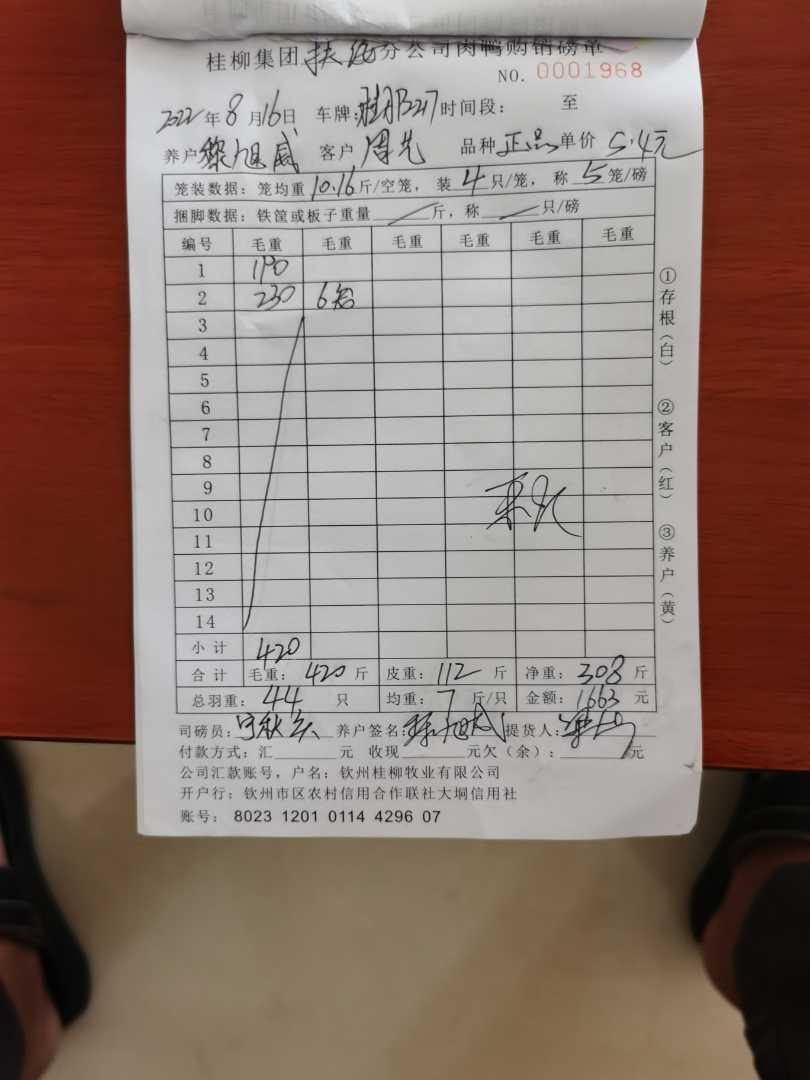 桂柳集团 扶绥 分公司肉鸭购销磅单
NO. 0001968
2022年8月16日 车牌: 时间段: 至
养户 黎旭威 客户 周先 品种 正品 单价 5.4元
笼装数据: 笼均重 10.16 斤/空笼, 装 4 只/笼, 称 5 笼/磅
捆脚数据: 铁筐或板子重量 / 斤, 称 / 只/磅
编号 毛重 毛重 毛重 毛重 毛重 毛重
1 190
2 230 6笼
3
4
5
6
7
8
9
10
11
12
13
14
小计 420
合计 毛重: 420 斤 皮重: 112 斤 净重: 308 斤
总羽重: 44 只 均重: 7 斤/只 金额: 1663 元
司磅员: 养户签名: 提货人:
付款方式: 汇 元 收现 元欠(余): 元
公司汇款账号, 户名: 钦州桂柳牧业有限公司
开户行: 钦州市区农村信用合作联社大垌信用社
账号: 8023 1201 0114 4296 07
①存根(白)
②客户(红)
③养户(黄)